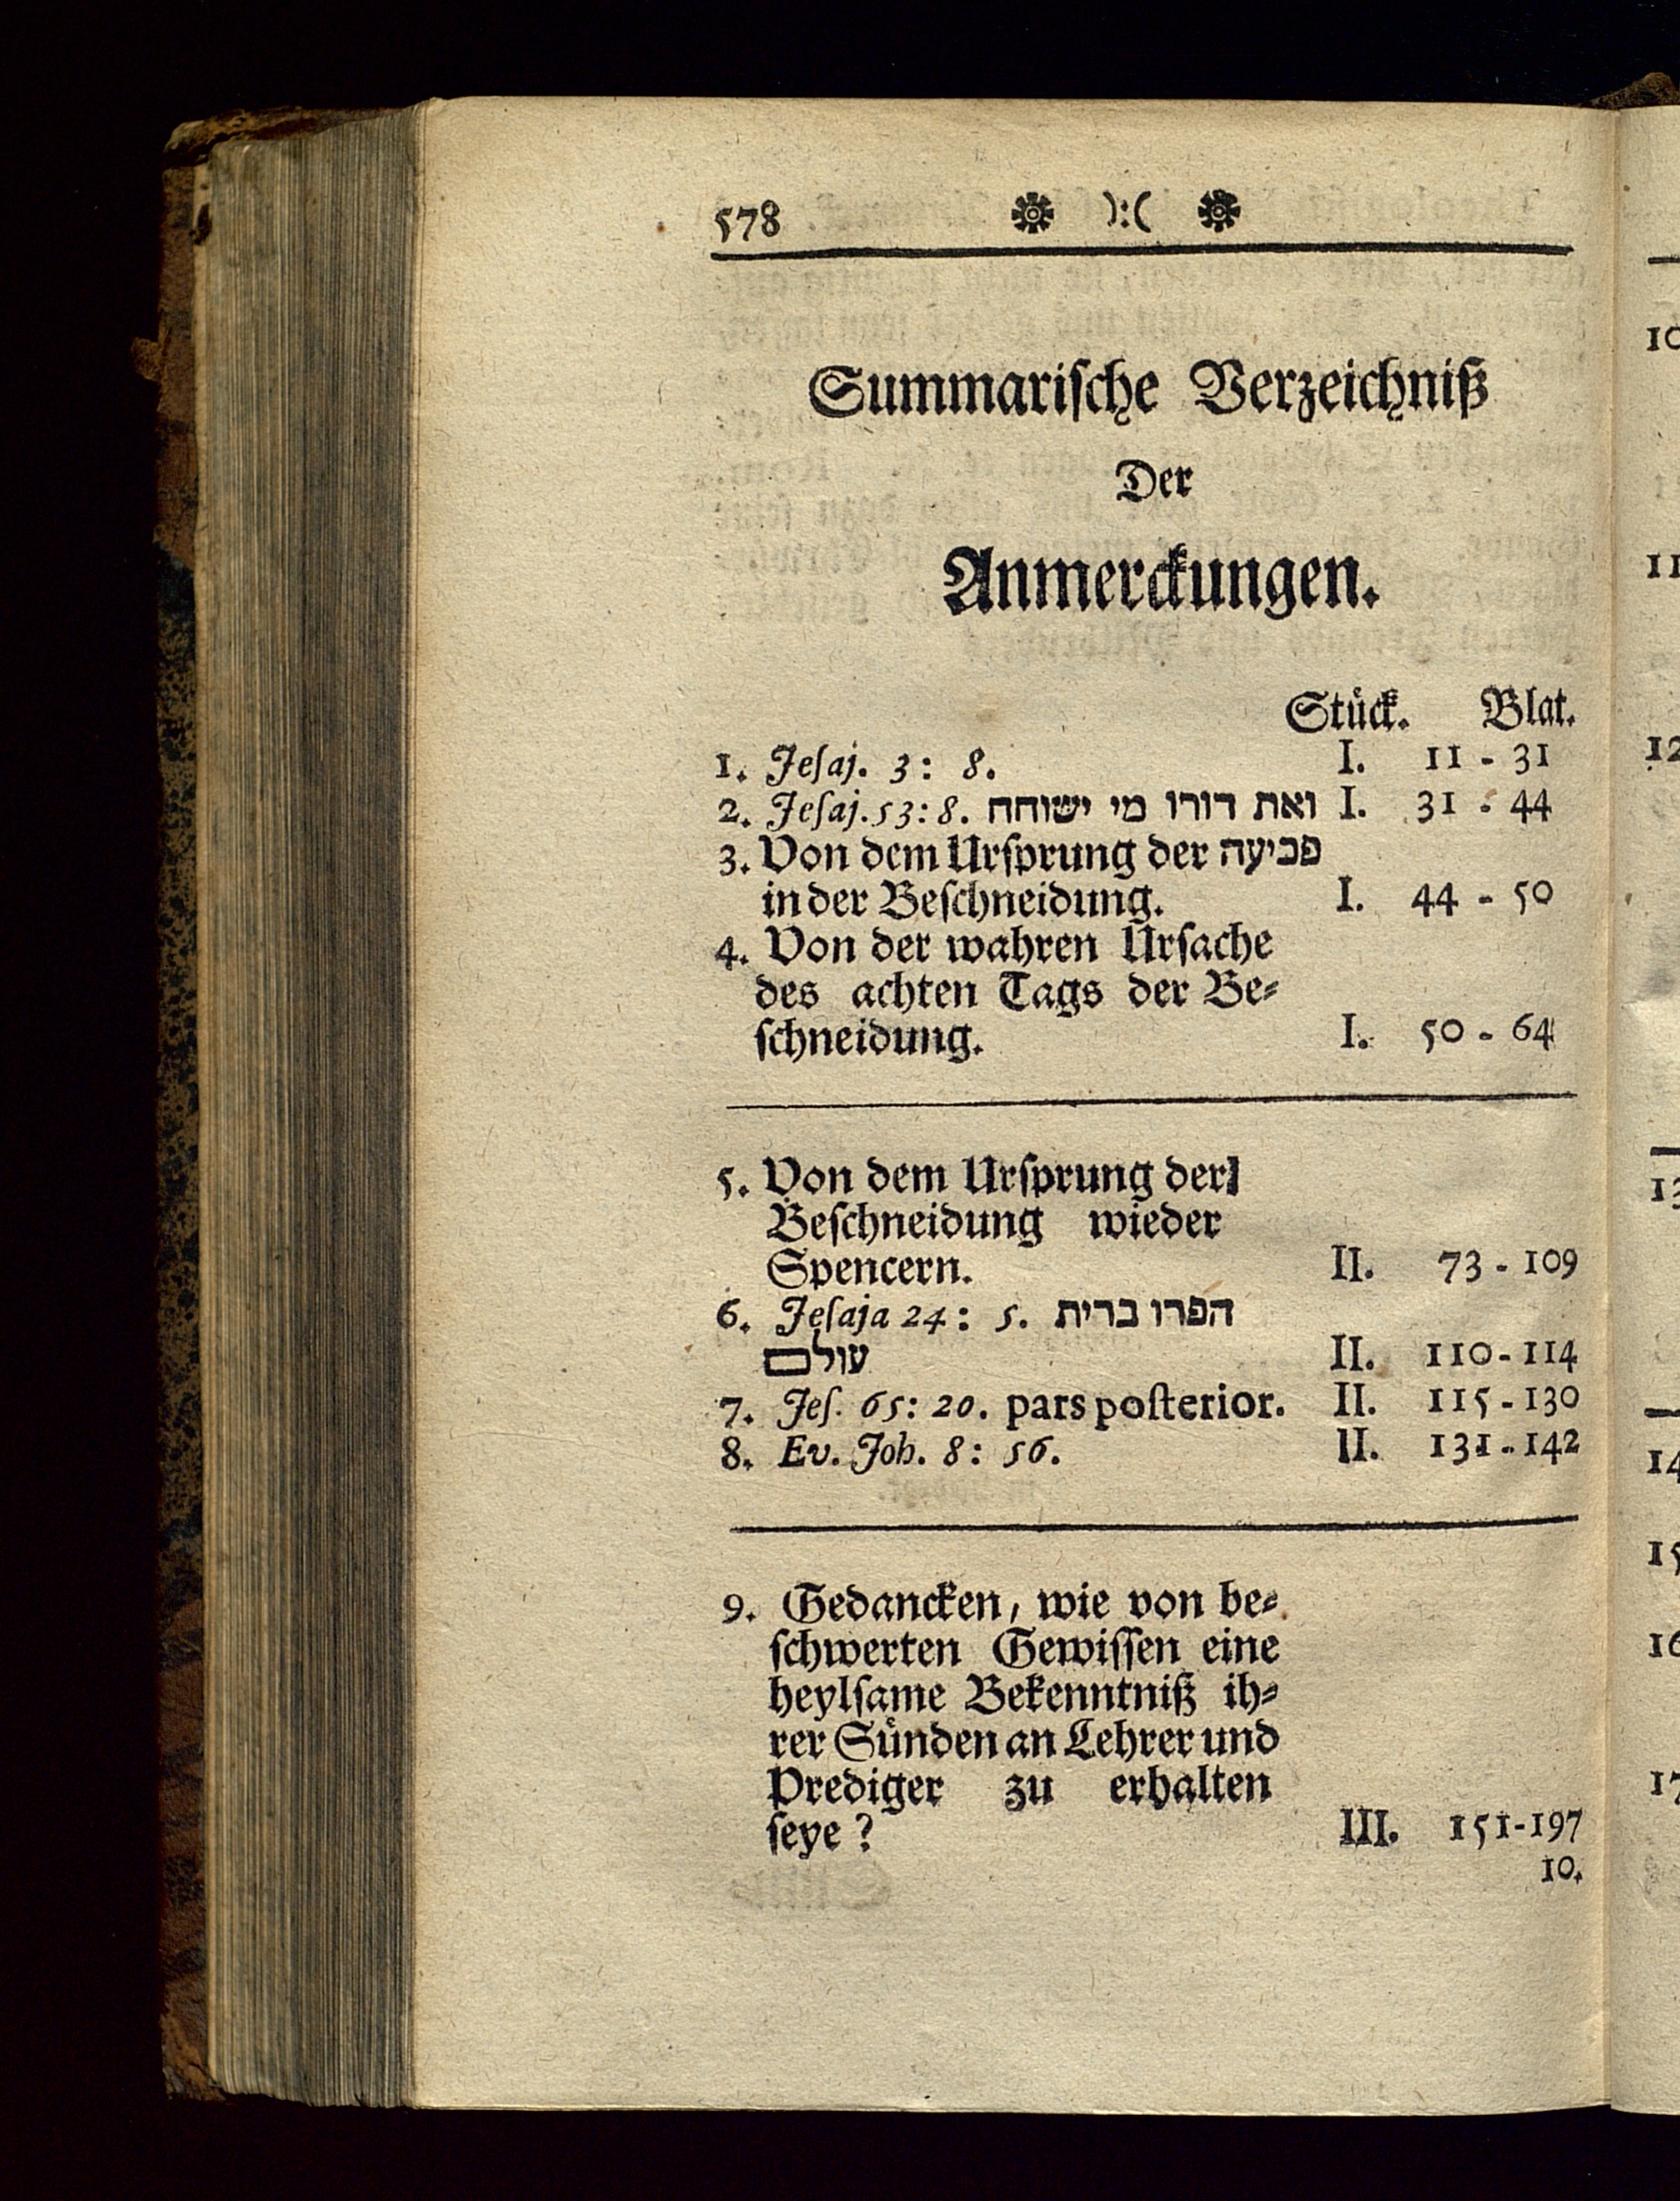 578 ❁ ):( ❁
Summariſche Verzeichniß
Der
Anmerckungen.
Stück. Blat.
1. Jeſaj. 3: 8. I. 11 - 31
2. Jeſaj. 53: 8. ואת דורו מי ישוחח I. 31 - 44
3. Von dem Urſprung der פכיעה
in der Beſchneidung. I. 44 - 50
4. Von der wahren Urſache
des achten Tags der Be⸗
ſchneidung. I. 50 - 64
5. Von dem Urſprung der
Beſchneidung wieder
Spencern. II. 73 - 109
6. Jeſaja 24: 5. הפרו ברית
עולם II. 110 - 114
7. Jeſ. 65: 20. pars poſterior. II. 115 - 130
8. Ev. Joh. 8: 56. II. 131 - 142
9. Gedancken, wie von be⸗
ſchwerten Gewiſſen eine
heylſame Bekenntniß ih⸗
rer Sünden an Lehrer und
Prediger zu erhalten
ſeye? III. 151-197
10.
10
11
12
13
14
15
16
17